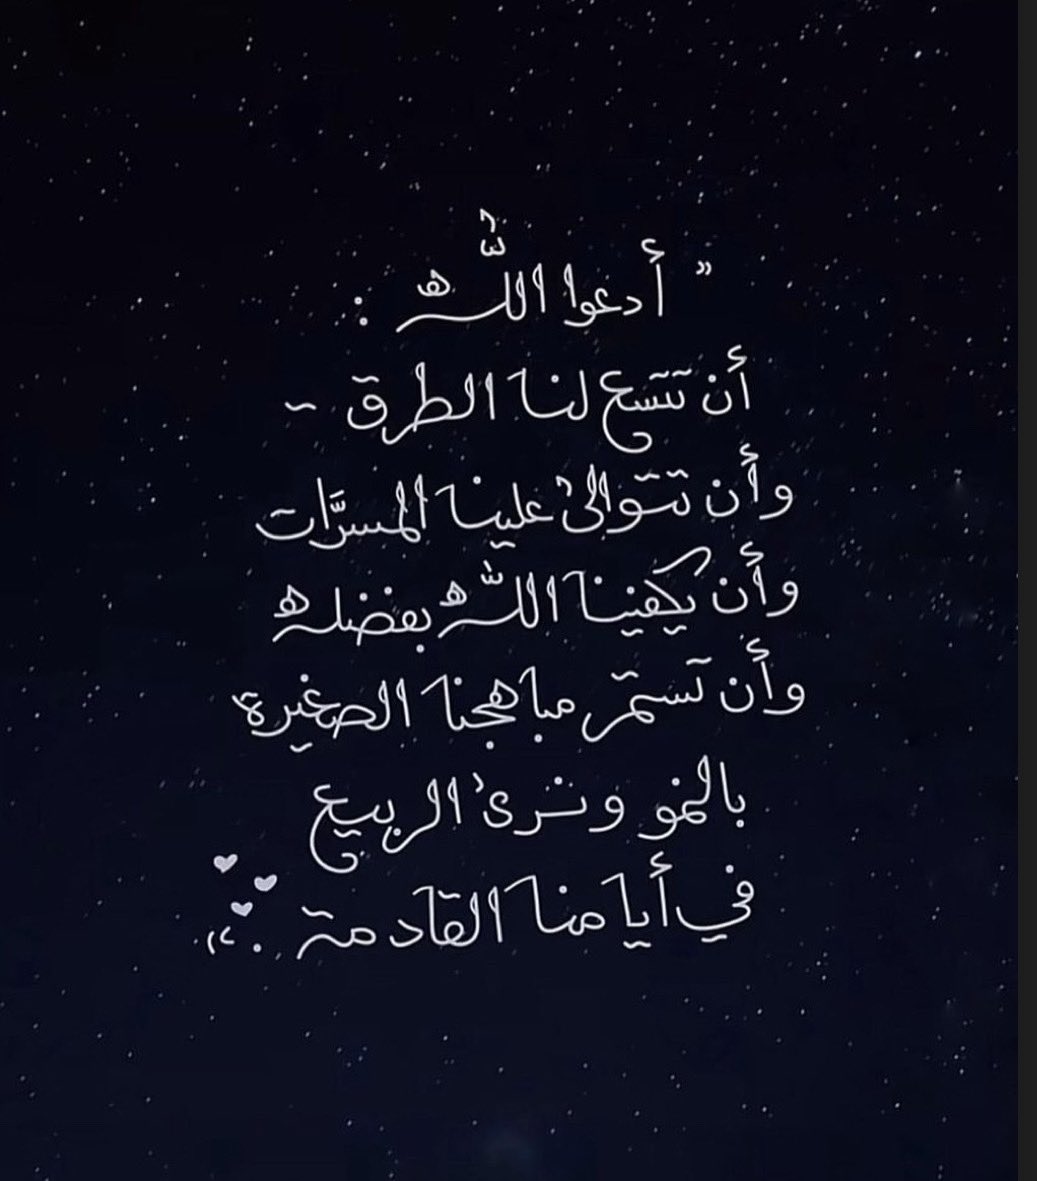 " أدعوا اللّٰه :
أن تتسع لنا الطرق ~
وأن تتوالىٰ علينا المسرَّات
وأن يكفينا اللّه بفضله
وأن تستمر مباهجنا الصغيرة
بالنمو ونرىٰ الربيع
في أيامنا القادمة .